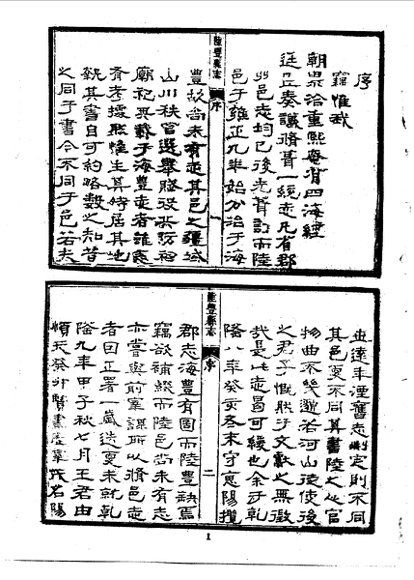 序
竊惟我
朝累洽重熙奄有四海經
廷臣奏議脩葺一統志凡省郡
州邑志均已後先葺訂而陸
邑于雍正九年始分治于海
陸豐縣志
序
一
豐故尚未有志其邑之疆域
山川秩官選舉勝蹟坊祠
廟祀典載于海豐志者雖悉
有考據然惟生其時居其地
其書自可約略數之知昔
之同于書今不同于邑若夫
世遠年湮舊志則不同
其邑更不同其書陸之人官
物曲不幾邈若河山陵使後
之君子慨然于文獻之無徵
哉是此志曷可緩也余于乾
隆八年癸亥冬來守惠陽攬
陸豐縣志
序
二
郡志海豐有圖而陸豐缺焉
竊欲補綴而陸邑尚未有志
亦嘗與前寀謀所以脩邑志
者因正署一歲迭更未就乾
隆九年甲子秋七月王君由
順天癸卯賢書氏名陽
1